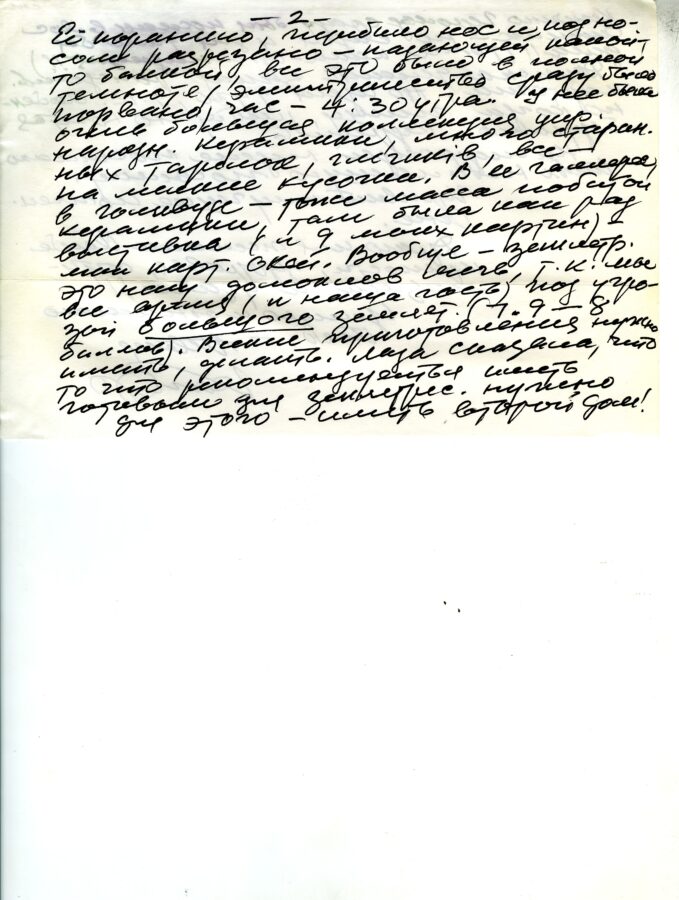 — 2 —
Её поранило, пробило нос и, под но-
сом разрезано — падающей какой-
то банкой, все это было в полной
темноте, электричество сразу было
порвано, час — 4:30 утра. У нее была
очень большая коллекция укр.
народн. керамики, много старин.
ных тарелок, глечиків, все —
на мелкие кусочки. В ее галлерее,
в голивуде — тоже масса побитой
керамики, там была как раз
выставка, (и 9 моих картин) —
мои карт. Окей. Вообще — землетр.
это наш домоклов меч, т.к. мы
все время, (и наша часть) под угро-
зой большого землет. (7.9 — 8
баллов). Всякие приготовления нужно
иметь, делать. Лаза сказала, что
то что рекомендуеться иметь
готовым для землетряс. нужно
для этого — иметь второй дом!